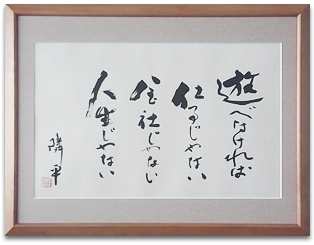 遊べなければ
仕事じゃない
会社じゃない
人生じゃない
隣平